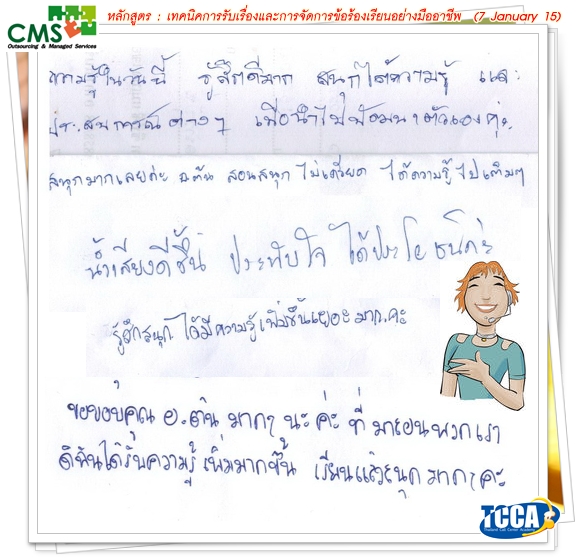 CMS
Outsourcing & Managed Services
หลักสูตร : เทคนิคการรับเรื่องและการจัดการข้อร้องเรียนอย่างมืออาชีพ (7 January 15)
ความรู้ในวันนี้ รู้สึกดีมาก สนุกได้ความรู้ และ
ประสบการณ์ต่างๆ เพื่อนำไปพัฒนาตัวเองค่ะ
สนุกมากเลยค่ะ อ.ต้น สอนสนุก ไม่เครียด ได้ความรู้ไปเต็มๆ
น้ำเสียงดีขึ้น ประทับใจ ได้ประโยชน์ค่ะ
รู้สึกสนุก ได้มีความรู้เพิ่มขึ้นเยอะมาก.คะ
ขอขอบคุณ อ.ต้น มากๆ นะค่ะ ที่มาสอนพวกเรา
ดิฉันได้รับความรู้เพิ่มมากขึ้น เรียนแล้วสนุกมากๆคะ
TCCA
Thailand Call Center Academy